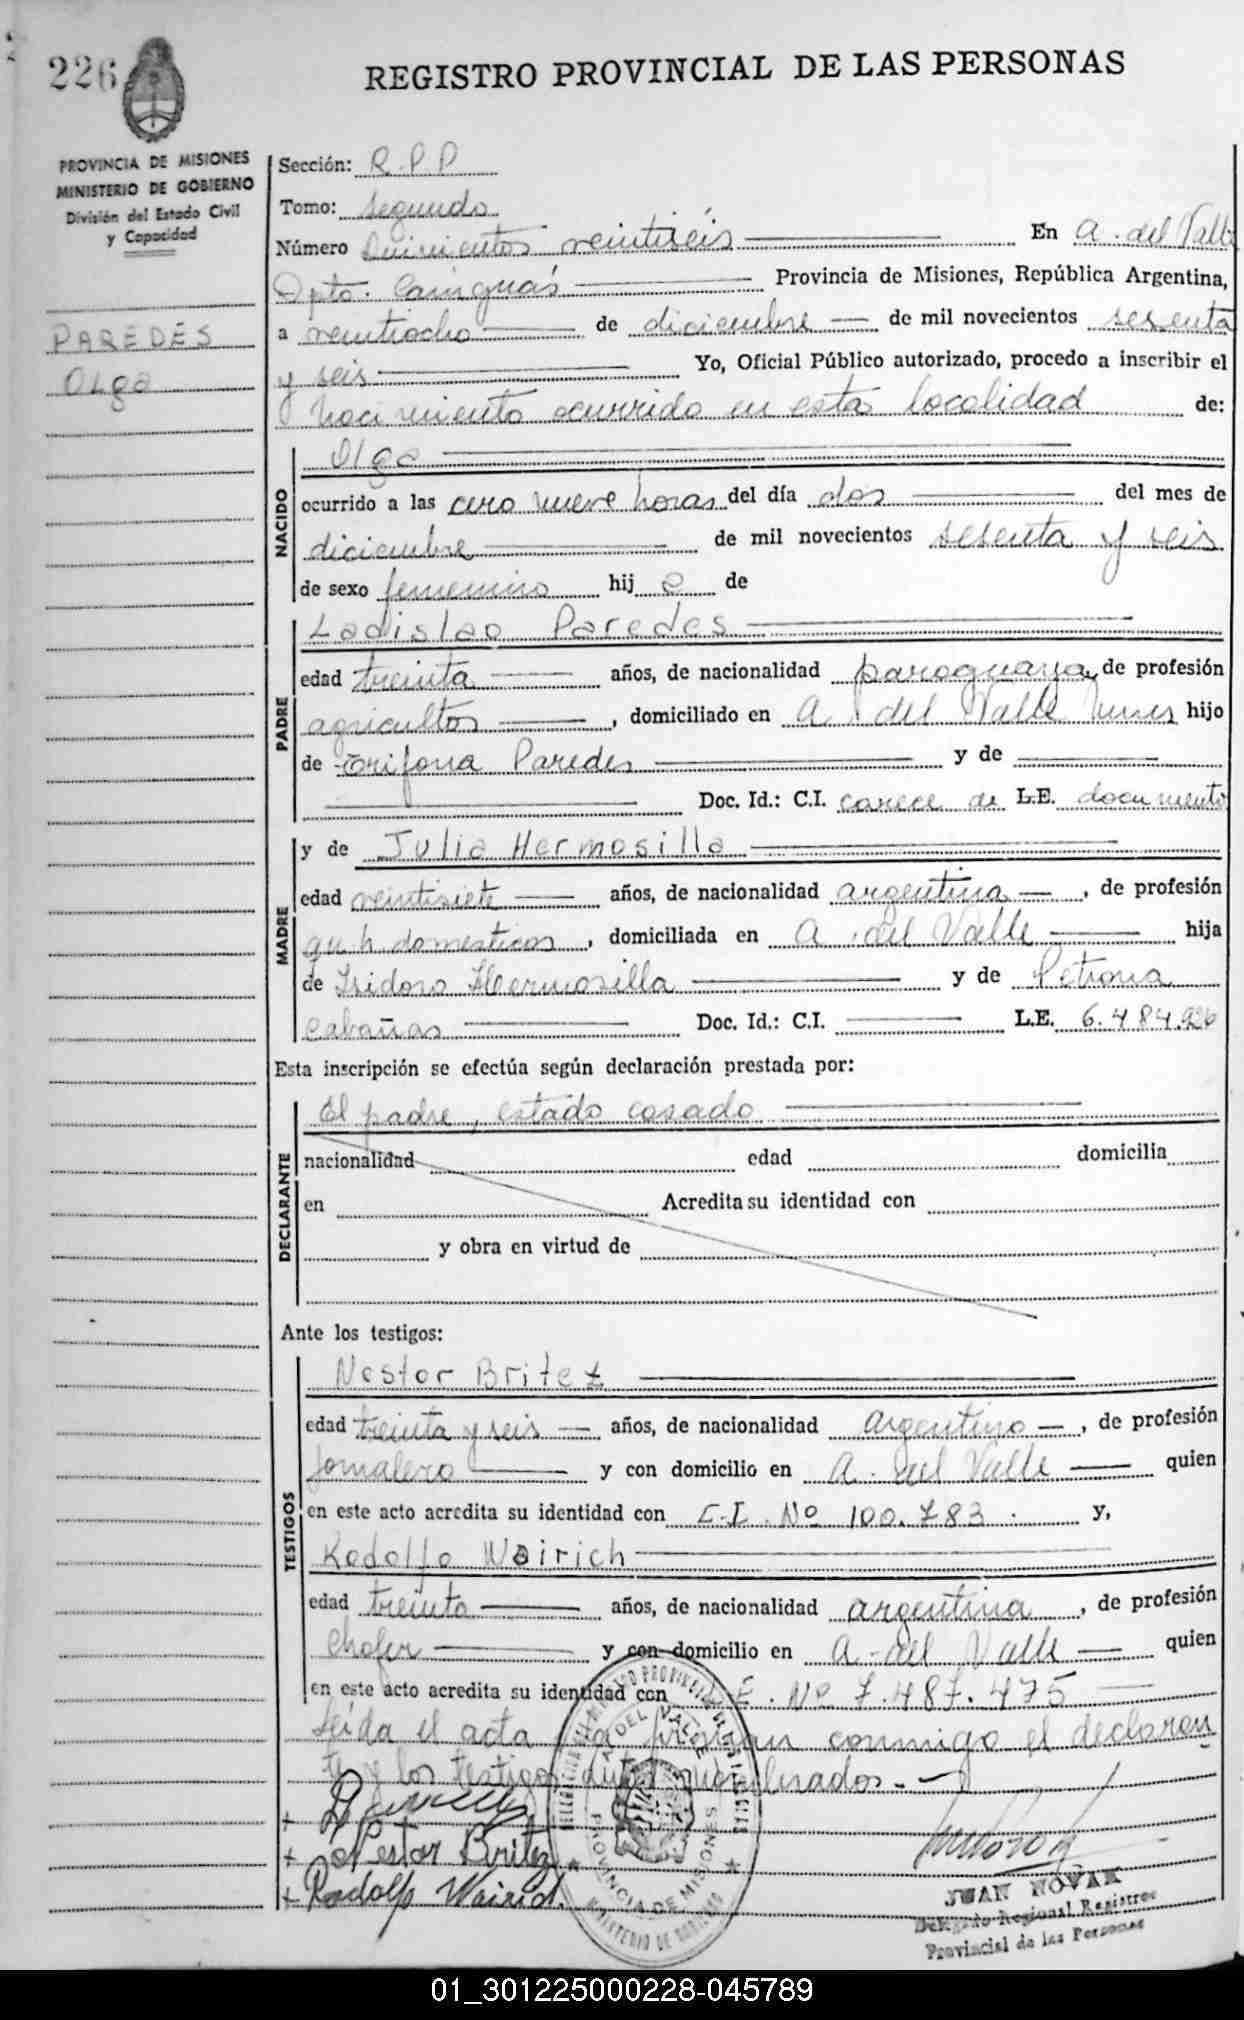 226
REGISTRO PROVINCIAL DE LAS PERSONAS
PROVINCIA DE MISIONES
MINISTERIO DE GOBIERNO
División del Estado Civil
y Capacidad
PAREDES
Olga
Sección: R.P.P
Tomo: segundo
Número Quinientos veintiséis En A. del Valle
Dpto. Cainguás Provincia de Misiones, República Argentina,
a veintiocho de diciembre de mil novecientos sesenta
y seis Yo, Oficial Público autorizado, procedo a inscribir el
Nacimiento ocurrido en esta localidad de:
NACIDO
Olga
ocurrido a las cero nueve horas del día dos del mes de
diciembre de mil novecientos sesenta y seis
de sexo femenino hij a de
PADRE
Ladislao Paredes
edad treinta años, de nacionalidad paraguaya, de profesión
agricultor, domiciliado en A. del Valle hijo
de Paredes y de
Doc. Id.: C.I. carece de L.E. documento
MADRE
y de Julia Hermosilla
edad veintisiete años, de nacionalidad argentina, de profesión
qu h. domesticos, domiciliada en A. del Valle hija
de Isidoro Hermosilla y de Petrona
Cabañas Doc. Id.: C.I. L.E. 6.484.926
Esta inscripción se efectúa según declaración prestada por:
DECLARANTE
El padre, estado casado
nacionalidad edad domicilia
en Acredita su identidad con
y obra en virtud de
Ante los testigos:
TESTIGOS
Nestor Britez
edad treinta y seis años, de nacionalidad argentino, de profesión
jornalero y con domicilio en A. del Valle quien
en este acto acredita su identidad con C.I. Nº 100.783. y,
Rodolfo Wairich
edad treinta años, de nacionalidad argentina, de profesión
chofer y con domicilio en A. del Valle quien
en este acto acredita su identidad con L.E. Nº 7.487.475
Leida el acta la firman conmigo el declaran
te y los testigos
Nestor Britez
Rodolfo Wairich
A DEL VALLE
PROVINCIA DE MISIONES
MINISTERIO DE GOBIERNO
JUAN NOVAK
Delegado Regional Registro
Provincial de las Personas
01_301225000228-045789